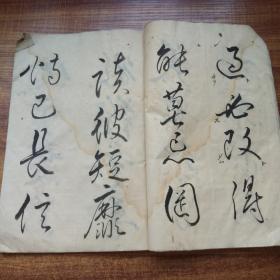 過必改得
能莫忘罔
談彼短靡
恃己長信